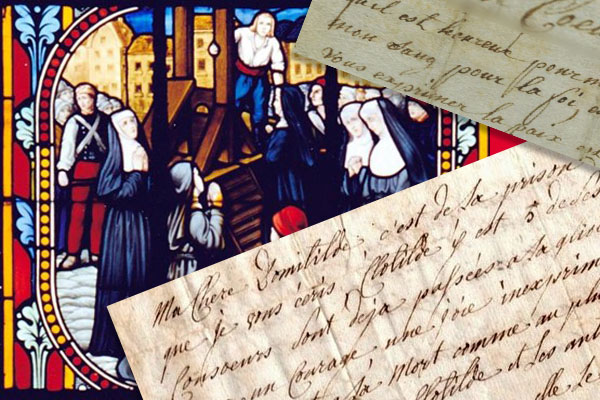 Coeu
qu'il est heureux pour m
mon sang pour la foi, 
vous exprimer la paix
Ma Chere Domitilde, c'est de la prison
que je vous écris Clotilde y est 5 de
Consoeurs sont déja passées a la guil
un Courage une joie inexprim
la mort comme au plu
Clotilde et les an
elle le